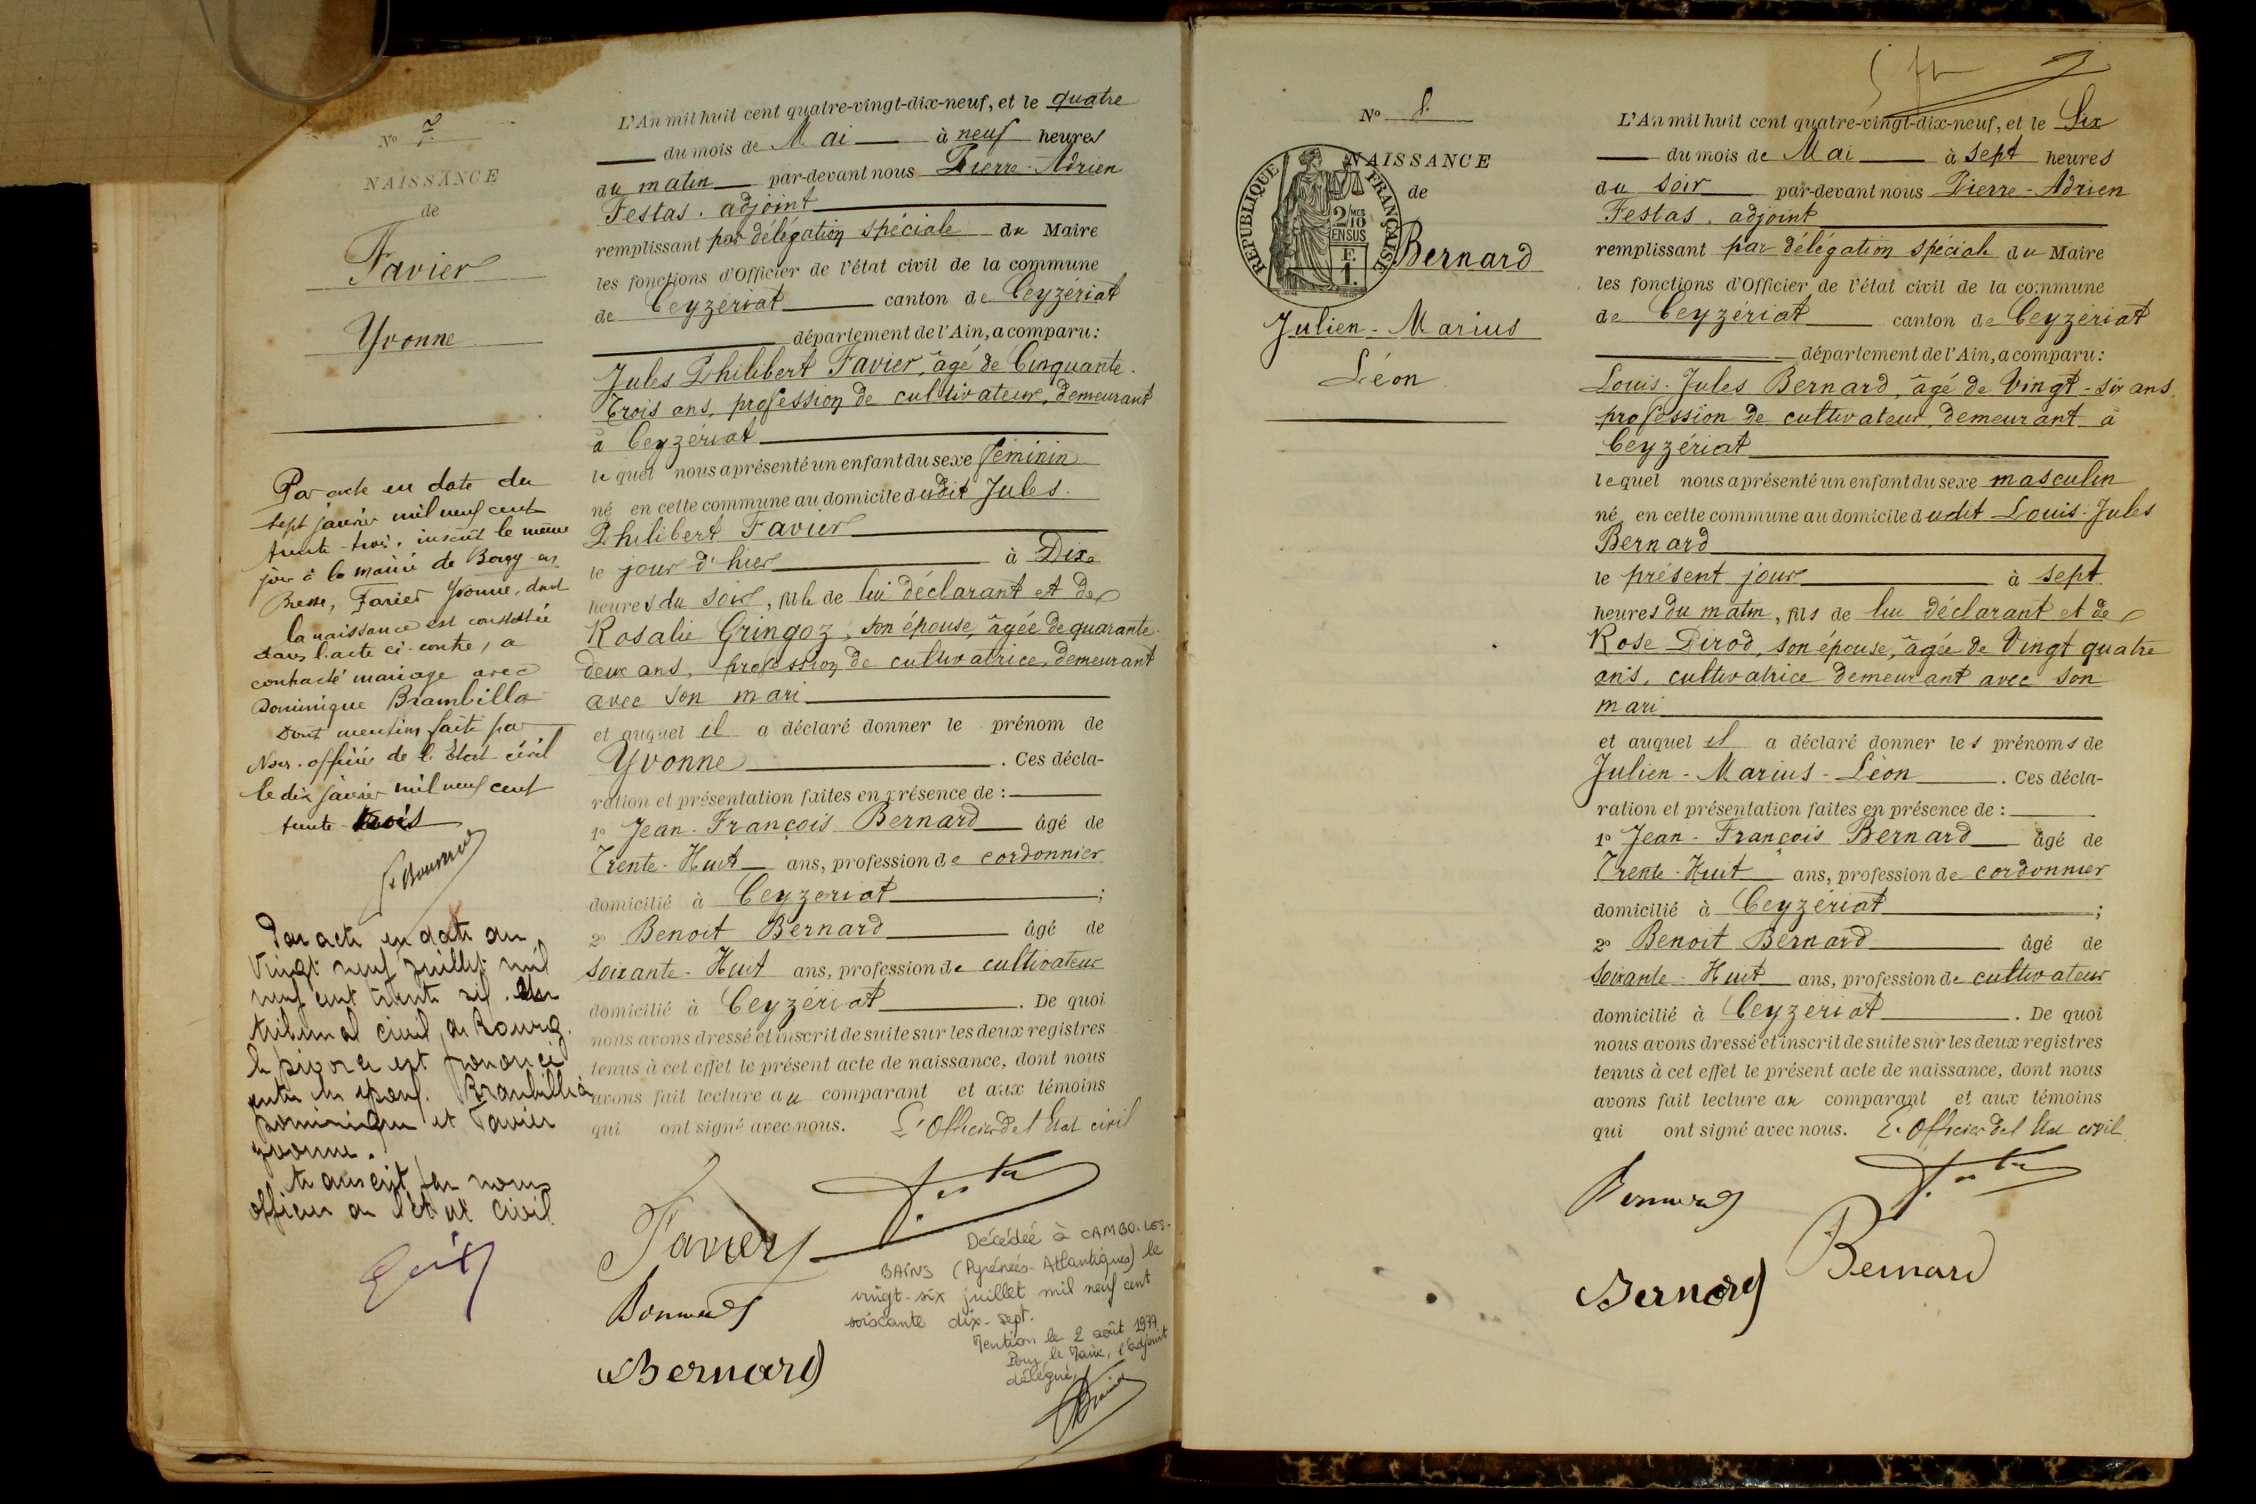 N° 7.
NAISSANCE
de
Favier
Yvonne
Par acte en date du
sept janvier mil neuf cent
trente-trois, inscrit le même
jour à la mairie de Bourg en
Bresse, Favier Yvonne, dont
la naissance est constatée
dans l'acte ci-contre, a
contracté mariage avec
Dominique Brambilla
Dont mention faite par
Nous, officier de l'Etat civil
le dix janvier mil neuf cent
trente-trois
Par acte en date du
vingt neuf juillet mil
neuf cent trente six. du
tribunal civil de Bourg.
le divorce est prononcé
entre les époux. Brambilla
Dominique et Favier
Yvonne.
transcrit par nous
officier de l'état civil
L'An mil huit cent quatre-vingt-dix-neuf, et le quatre
du mois de Mai à neuf heures
du matin par-devant nous Pierre-Adrien
Festas. adjoint
remplissant par délégation spéciale du Maire
les fonctions d'Officier de l'état civil de la commune
de Ceyzériat canton de Ceyzériat
département de l'Ain, a comparu:
Jules Philibert Favier, âgé de Cinquante.
Trois ans, profession de cultivateur, demeurant
à Ceyzériat
lequel nous a présenté un enfant du sexe féminin
né en cette commune au domicile dudit Jules.
Philibert Favier
le jour d'hier à Dix
heures du soir, fille de lui déclarant et de
Rosalie Gringoz, son épouse, âgée de quarante-
deux ans, profession de cultivatrice, demeurant
avec son mari
et auquel il a déclaré donner le prénom de
Yvonne. Ces décla-
ration et présentation faites en présence de:
1° Jean-François Bernard âgé de
Trente-Huit ans, profession de cordonnier
domicilié à Ceyzériat;
2° Benoit Bernard âgé de
soixante-Huit ans, profession de cultivateur
domicilié à Ceyzériat. De quoi
nous avons dressé et inscrit de suite sur les deux registres
tenus à cet effet le présent acte de naissance, dont nous
avons fait lecture au comparant et aux témoins
qui ont signé avec nous. L'Officier de l'Etat civil
Favier
Bernard
Bernard
Décédée à CAMBO-LES-
BAINS (Pyrénées-Atlantiques) le
vingt-six juillet mil neuf cent
soixante dix-sept.
Mention le 2 août 1977
Pour le Maire, l'adjoint
délégué,
N° 8.
NAISSANCE
de
RÉPUBLIQUE FRANÇAISE
2/10 MES
EN SUS
F.
1.
Bernard
Julien-Marius
Léon
5 fr
L'An mil huit cent quatre-vingt-dix-neuf, et le Six
du mois de Mai à sept heures
du soir par-devant nous Pierre-Adrien
Festas. adjoint
remplissant par délégation spéciale du Maire
les fonctions d'Officier de l'état civil de la commune
de Ceyzériat canton de Ceyzériat
département de l'Ain, a comparu:
Louis-Jules Bernard, âgé de Vingt-six ans,
profession de cultivateur, demeurant à
Ceyzériat
lequel nous a présenté un enfant du sexe masculin
né en cette commune au domicile dudit Louis-Jules
Bernard
le présent jour à sept
heures du matin, fils de lui déclarant et de
Rose Pirod, son épouse, âgée de Vingt quatre
ans, cultivatrice demeurant avec son
mari
et auquel il a déclaré donner les prénoms de
Julien-Marius-Léon. Ces décla-
ration et présentation faites en présence de:
1° Jean-François Bernard âgé de
Trente-Huit ans, profession de cordonnier
domicilié à Ceyzériat;
2° Benoit Bernard âgé de
soixante-Huit ans, profession de cultivateur
domicilié à Ceyzériat. De quoi
nous avons dressé et inscrit de suite sur les deux registres
tenus à cet effet le présent acte de naissance, dont nous
avons fait lecture au comparant et aux témoins
qui ont signé avec nous. L'Officier de l'Etat civil
Bernard
Bernard
Bernard